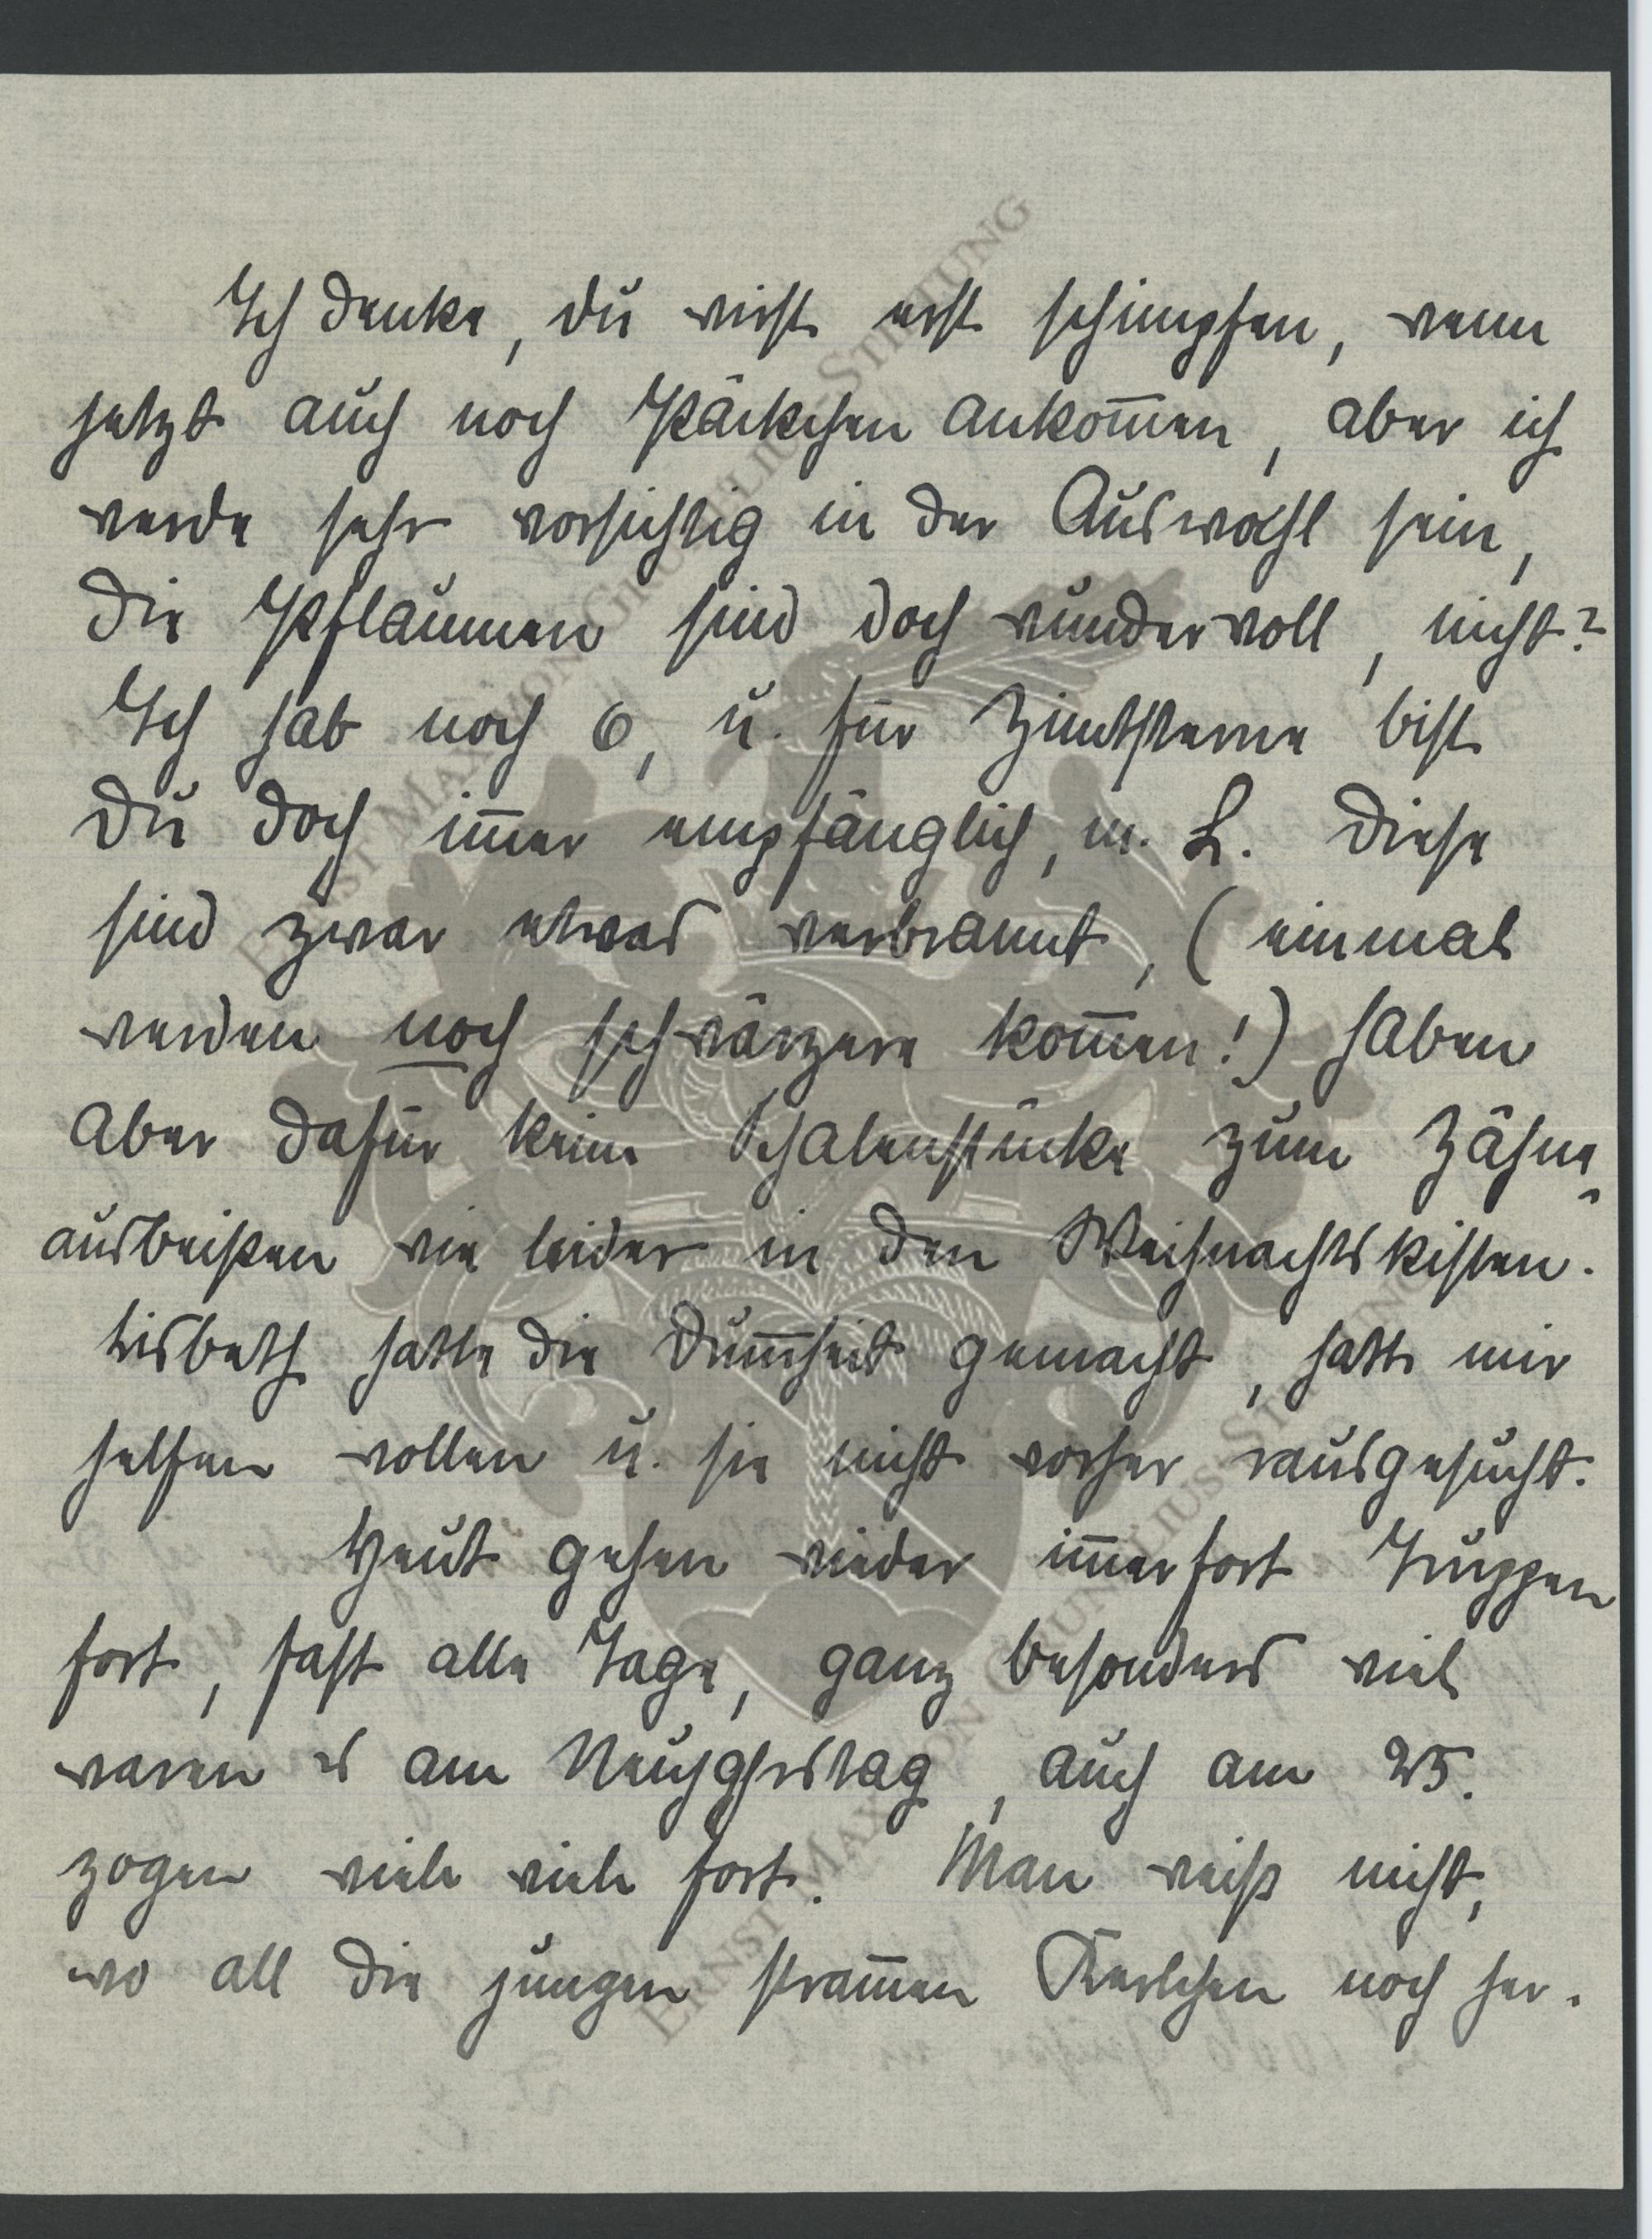 Ich denke, du wirst erst schimpfen, wenn
jetzt auch noch Päckchen ankom̅en, aber ich
werde sehr vorsichtig in der Auswahl sein,
die Pflaumen sind doch wundervoll, nicht?
Ich hab noch 6, u. für Zimtsterne bist
Du doch im̅er empfänglich, m. L. Diese
sind zwar etwas verbrannt, (einmal
werden noch schwärzere kom̅en!) haben
aber dafür keine Schalenstücke zum Zähne
ausbeißen wie leider in den Weihnachtskisten.
Lisbeth hatte die Dum̅heit gemacht, hatte mir
helfen wollen u. sie nicht vorher rausgesucht.
Heut gehen wieder im̅erfort Truppen
fort, fast alle Tage, ganz besonders viel
waren es am Neujahrstag, auch am 25.
zogen viele viele fort. Man weiß nicht,
wo all die jungen stram̅en Kerlchen noch her-
ERNST MAX VON GRUNELIUS STIFTUNG
ERNST MAX VON GRUNELIUS STIFTUNG